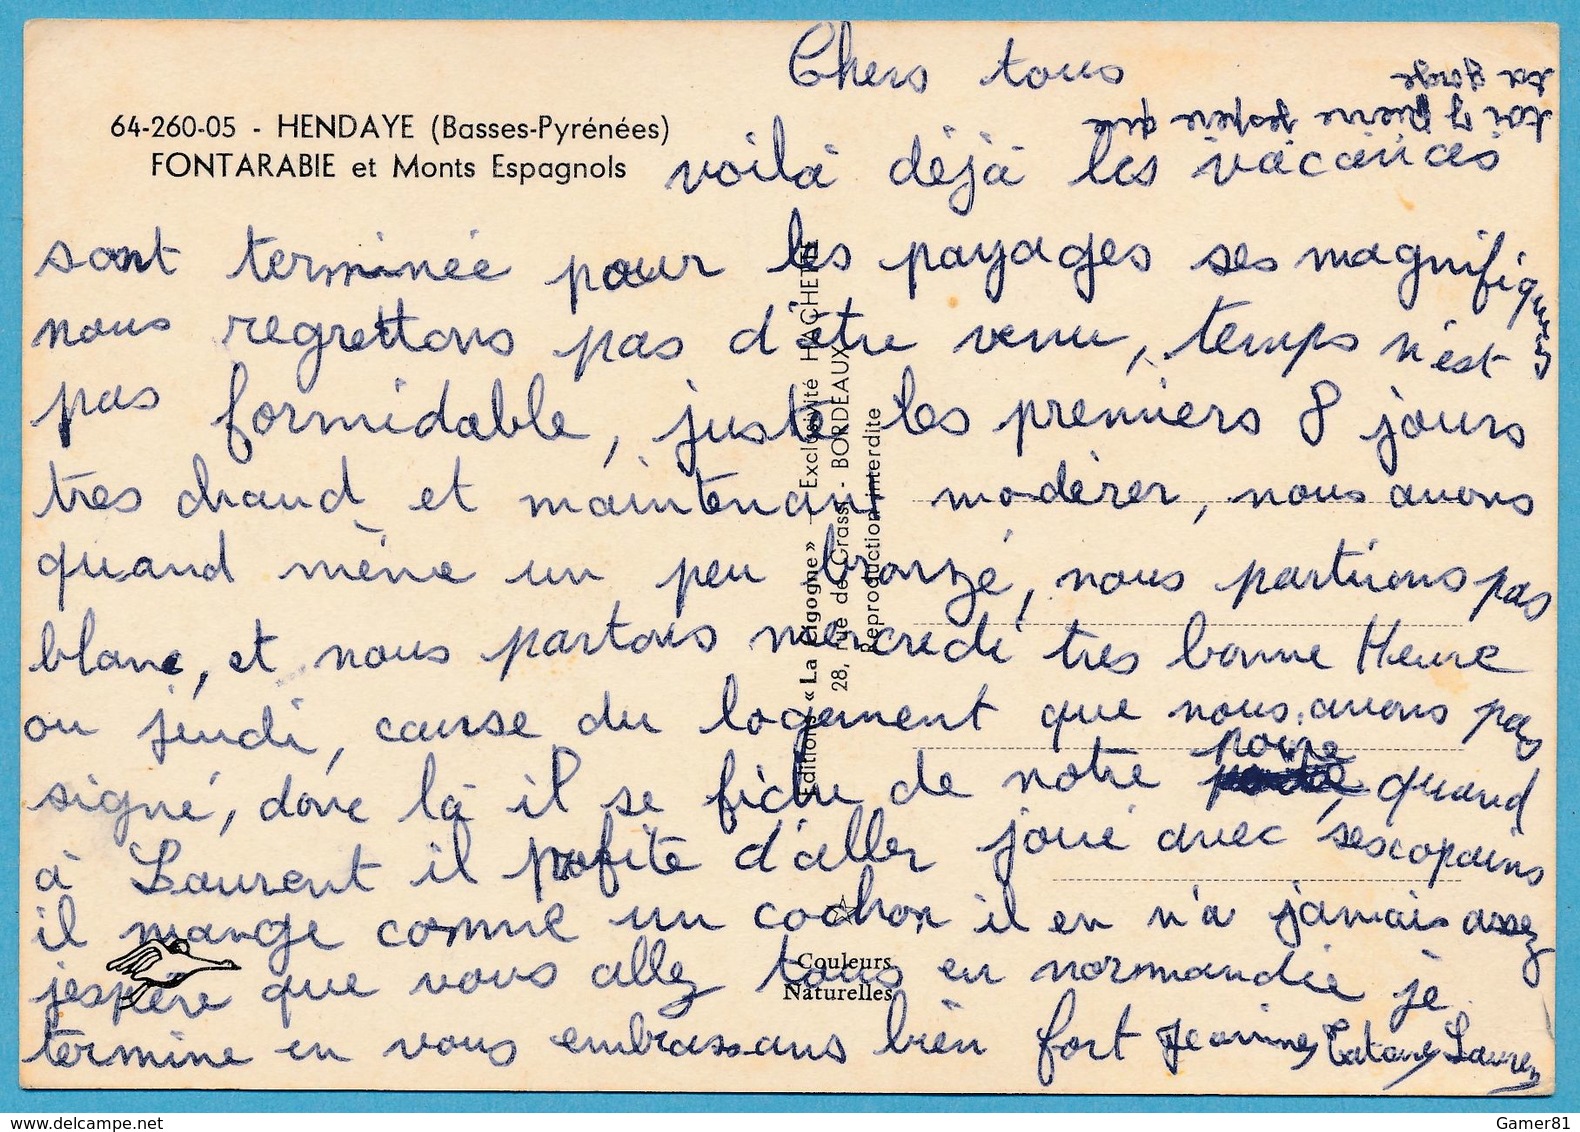 64-260-05 - HENDAYE (Basses-Pyrénées)
FONTARABIE et Monts Espagnols
Chers tous
voilà déjà les vacances
sont terminée pour les payages ses magnifiques
nous regrettons pas d'être venu, temps n'est
pas formidable, juste les premiers 8 jours
tres chaud et maintenant modérer, nous avons
quand même un peu bronzé, nous partirons pas
blanc, et nous partons mercredi tres bonne Heure
ou jeudi, cause du logement que nous avons pas
signé, donc là il se fiche de notre poire, quand
à Laurent il profite d'aller joué avec ses copains
il mange comme un cochon il en n'a jamais assez
jespère que vous allez tous en normandie je
termine en vous embrassans bien fort Jeanine, Tatave, Lauren
toi y jespère que
ta gorge
Editions « La Cigogne » — Exclusivité HACHETTE
28, rue de Grassi - BORDEAUX
Reproduction interdite
Couleurs
Naturelles
Gamer81